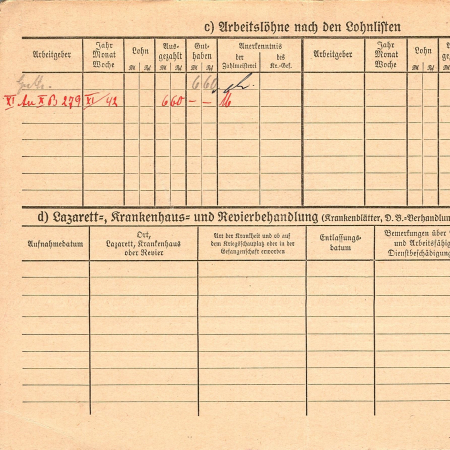 c) Arbeitslöhne nach den Lohnlisten
Arbeitgeber Jahr Monat Woche Lohn Aus- gezahlt Gut- haben Anerkenntnis Arbeitgeber Jahr Monat Woche Lohn
M Pf M Pf M Pf der Zahlmeisterei des Kr.-Gef. M Pf
6 60
XI 279 XI/42 6 60 – –
d) Lazarett-, Krankenhaus- und Revierbehandlung (Krankenblätter, D.B.-Verhandlun
Aufnahmedatum Ort, Lazarett, Krankenhaus oder Revier Art der Krankheit und ob auf dem Kriegsschauplatz oder in der Gefangenschaft erworben Entlassungs- datum Bemerkungen über und Arbeitsfähig Dienstbeschädigung